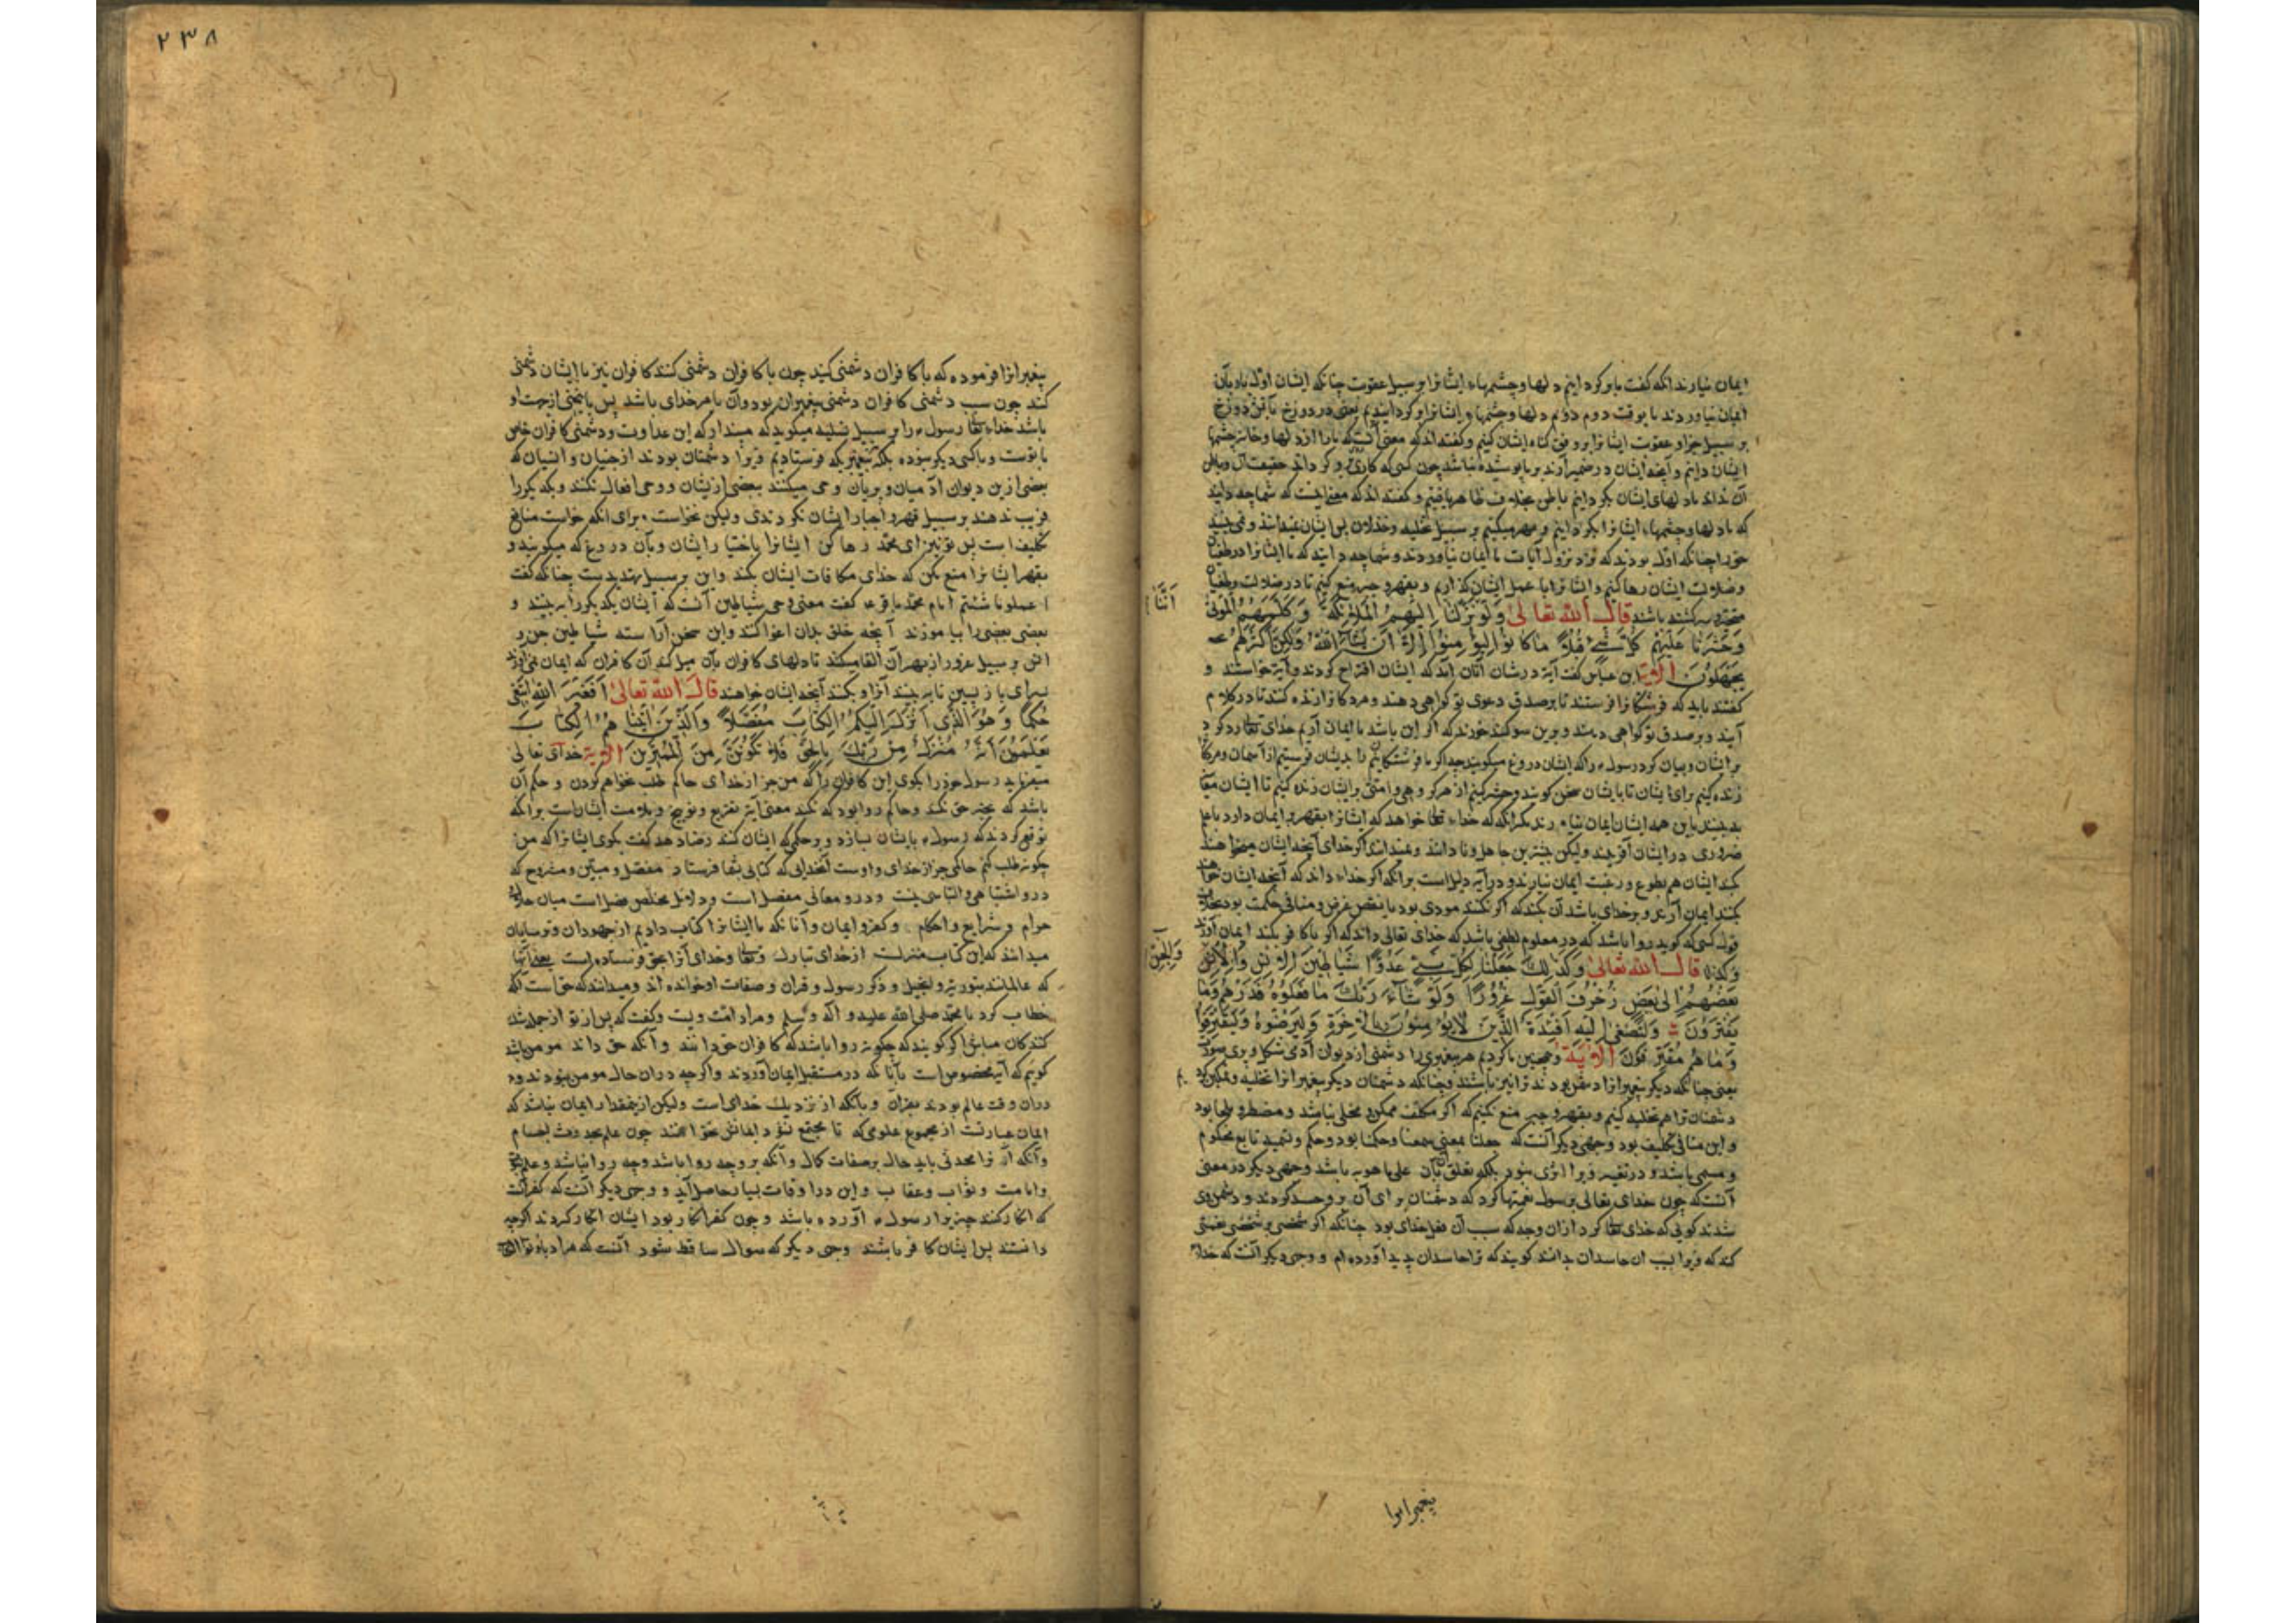 ایمان نیارند انکه گفت ما بر کردانیم دلها وچشمها ایشانرا بر سبیل عقوبت چنانکه ایشان اوّل باد بآن
ایمان نیاوردند ما بوقت دوم دلها وچشمها ایشانرا بر کردانیدیم یعنی در دوزخ
بر سبیل جزا وعقوبت ایشانرا بر وفق کناه ایشان کنیم وگفته‌اند که معنی آنست که ما را از دلها وخاینه چشمها
ایشان دانیم وآنچه ایشان در ضمیر آرند بر ما پوشیده نباشد چون کسی که کاری
آن نداند ما دلهای ایشان بکردانیم باطن بخلاف ظاهر یافتیم وگفته‌اند که معنی اینست که شما چه دانید
که ما دلها وچشمهاء ایشانرا بکردانیم ومهر میکنیم بر سبیل تخلیه وخذلان پس ایشان نمیدانند ونمی بینند
خود را چنانکه اوّل بودند که نزد نزول آیات ما ایمان نیاوردند وشما چه دانید که ما ایشانرا در طغیان
وضلالت ایشان رها کنیم وایشانرا با عمل ایشان گذاریم وبقهر وجبر منع نکنیم تا در ضلالت وطغیان
متحیّر وسرکشته باشند قال الله تعالی وَلَوْ نَزَّلْنَا اِلَیْهِمُ الْمَلٰئِکَةَ وَکَلَّمَهُمُ الْمَوْتٰی
اَنَّنَا
وَحَشَرْنَا عَلَیْهِمْ کُلَّ شَیْءٍ قُبُلًا مَا کَانُوْا لِیُؤْمِنُوْا اِلَّا اَنْ یَشَآءَ اللهُ وَلٰکِنَّ اَکْثَرَهُمْ
یَجْهَلُوْنَ الایة ابن عباس گفت آیة در شان آنان آمد که ایشان اقتراح کردند وآیة خواستند و
گفتند باید که فرشتکانرا فرستند تا بر صدق دعوی تو کواهی دهند ومردکانرا زنده کنند تا در کلام
آیند وبر صدق تو کواهی دهند وبرین سوکند خوردند که اگر این باشد ما ایمان آریم خدای تعا رد کرد
بر ایشان وبیان کرد رسول را که ایشان دروغ میکویند چه اگر ما فرشتکانرا بدیشان فرستیم از آسمان ومردکانرا
زنده کنیم برای ایشان تا با ایشان سخن کویند وحشر کنیم از هر کروهی وامتی برایشان زنده کنیم تا ایشان
بدبینند با این همه ایشان ایمان نیاورند مکر آنکه که خداء تعا خواهد که ایشانرا بقهر بر ایمان دارد با علم
ضروری در ایشان آفریند ولیکن بیشترین جاهل ونادانند ونمیدانند اگر خدای آنچه ایشان میخواهند
بکند ایشان هم بطوع ورغبت ایمان نیارند ودر آیة دلیل است بر آنکه اگر خداء داند که آنچه ایشان خواهند
بکند ایمان آرند بر خدای باشد آن بکند که اگر نکند مودی بود با نقض غرض ومنافی حکمت بود بخلاف
قول کسی که کوید روا باشد که در معلوم لطفی باشد که خدای تعالی داند که اگر با کافر بکند ایمان آرد
ونکند قال الله تعالی وَکَذٰلِكَ جَعَلْنَا لِکُلِّ نَبِیٍّ عَدُوًّا شَیَاطِیْنَ الْاِنْسِ وَالْجِنِّ
وَالْجِنِّ
بَعْضُهُمْ اِلٰی بَعْضٍ زُخْرُفَ الْقَوْلِ غُرُوْرًا وَلَوْ شَآءَ رَبُّكَ مَا فَعَلُوْهُ فَذَرْهُمْ وَمَا
یَفْتَرُوْنَ وَلِتَصْغٰی اِلَیْهِ اَفْئِدَةُ الَّذِیْنَ لَا یُؤْمِنُوْنَ بِالْاٰخِرَةِ وَلِیَرْضَوْهُ وَلِیَقْتَرِفُوْا
وَمَا هُمْ مُقْتَرِفُوْنَ الایة وهمچنین ما کردیم هر پیغمبری را دشمنی از دیوان آدمی شکل وپری صورت
یعنی چنانکه دیگر پیغمبرانرا دشمن بودند ترا نیز باشند وچنانکه دشمنان دیگر پیغمبرانرا تخلیه وتمکین کردیم
دشمنان ترا هم تخلیه کنیم وبقهر وجبر منع نکنیم که اگر مکلف ممکن ومخلی نباشد ومضطر وملجا بود
واین منافی تکلیف بود وجهی دیگر آنست که جعلنا بمعنی سمینا وحکمنا بود وحکم وتسمیه تابع محکوم
ومسمی باشد ودر تغییر ویرا اثری نبود بلکه تعلق بآن علی ما هو به باشد وجهی دیگر در معنی
آنست که چون خدای تعالی بر رسول نعمتها کرد که دشمنان برای آن بر وی حسد کردند ودشمن وی
شدند کوئی که خدای تعا کرد از آن وجه که سبب آن فعل خدای بود چنانکه اگر شخصی بر شخصی نعمتی
کند که ویرا بسبب آن حاسدان بدانند کویند که ترا حاسدان پدید آورده‌ام ووجهی دیگر آنست که خدا
پیغمبرانرا
۲۳۸
پیغمبرانرا فرموده که با کافران دشمنی کنید چون با کافران دشمنی کنند کافران نیز با ایشان دشمنی
کنند چون سبب دشمنی کافران دشمنی پیغمبران بود وآن بامر خدای باشد پس پنداری از جهت او
باشد خداء تعا رسول را بر سبیل تسلیه میکوید که مپندار که این عداوت ودشمنی کافران خاص
با توست وبا کسی دیگر نبوده بلکه هر پیغمبر که فرستادیم ویرا دشمنان بودند از جنیان وانسیان که
بعضی ازین دیوان آدمیان وپریان وحی میکنند بعضی ازیشان ووحی افعال نکنند ویکدیگر را
فریب ندهند بر سبیل قهر واجبار ایشان نکردندی ولیکن نخواست برای انکه خواست منافی
تکلیف است پس تو نیز ای محمّد رها کن ایشانرا باختیار ایشان وبآن دروغ که میکویند و
بقهر ایشانرا منع مکن که خدای مکافات ایشان بکند واین بر سبیل تهدیدست چنانکه گفت
اعملوا ما شئتم امام محمّد باقر ع گفت معنی وحی شیاطین آنست که ایشان یکدیگر را به بینند و
بعضی بعضی را بیاموزند آنچه خلق بدان اغوا کنند واین سخن آراسته شیاطین جن و
انس بر سبیل غرور از بهر آن القا میکنند تا دلهای کافران بآن میل کند آن کافران که ایمان نمی آورند
بسرای بازپسین تا بپسندند آنرا وبکنند آنچه ایشان خواهند قال الله تعالی اَفَغَیْرَ اللهِ اَبْتَغِیْ
حَکَمًا وَهُوَ الَّذِیْ اَنْزَلَ اِلَیْکُمُ الْکِتَابَ مُفَصَّلًا وَالَّذِیْنَ اٰتَیْنَاهُمُ الْکِتَابَ
یَعْلَمُوْنَ اَنَّهُ مُنَزَّلٌ مِنْ رَبِّكَ بِالْحَقِّ فَلَا تَکُوْنَنَّ مِنَ الْمُمْتَرِیْنَ الایة خدای تعالی
میفرماید رسول خود را بکوی این کافران را که من جز از خدای حاکم طلب نخواهم کردن وحکم آن
باشد که بجز حق نکند وحاکم روا بود که نکند معنی آیة تقریع وتوبیخ وملامت ایشان است بر آنکه
توقع کردند که رسول با ایشان بسازد وبر حکمی که ایشان کنند رضا دهد گفت بکوی ایشانرا که من
چکونه طلب کنم حاکمی جز از خدای واوست آنخدایی که کتابی بشما فرستاد مفصل ومبیّن ومشروح که
درو اشتباهی والتباسی نیست ودرو معانی مفصل است ودلایل مخلّص فصل است میان حلال
حرام وشرایع واحکام وکفر وایمان وآنانکه ما ایشانرا کتاب دادیم از جهودان وترسایان
میدانند که این کتاب منزلست از خدای تبارك وتعا وخدای آنرا بحق فرستاده است یعنی آنها
که عالمانند بتوریة وانجیل وذکر رسول وقران وصفات او خوانده اند ومیدانند که حق است آنکه
خطاب کرد با محمّد صلی الله علیه وآله وسلم ومراد امّت ویست وگفت که پس از تو از جمله شك
کنندکان مباش اگر کویند که چکونه روا باشد که کافران حق دانند وآنکه حق داند مومن باشد
کوییم که آیة مخصوص است بآنانکه در مستقبل ایمان آوردند واگرچه در آن حال مومن نبودند
در آن وقت عالم بودند بقران وبآنکه از نزدیك خدای است ولیکن از ینمقدار ایمان نباشد که
ایمان عبارتست از مجموع علومی که تا مجتمع نشود ایمانش نخوانند چون علم بحدوث اجسام
وآنکه آنرا محدثی باید حاله بر صفات کمال وآنکه بر وجه روا باشد وچه روا نباشد وعلم
وامامت وثواب وعقاب واین در اوقات بسیار حاصل آید ووجهی دیگر آنست که کفر آنست
که انکار کنند چیزیرا رسول آورده باشد وچون کفر انکار بود ایشان انکار کردند اگرچه
دانستند پس ایشان کافر باشند وجهی دیگر که سوال ساقط شود آنست که مراد